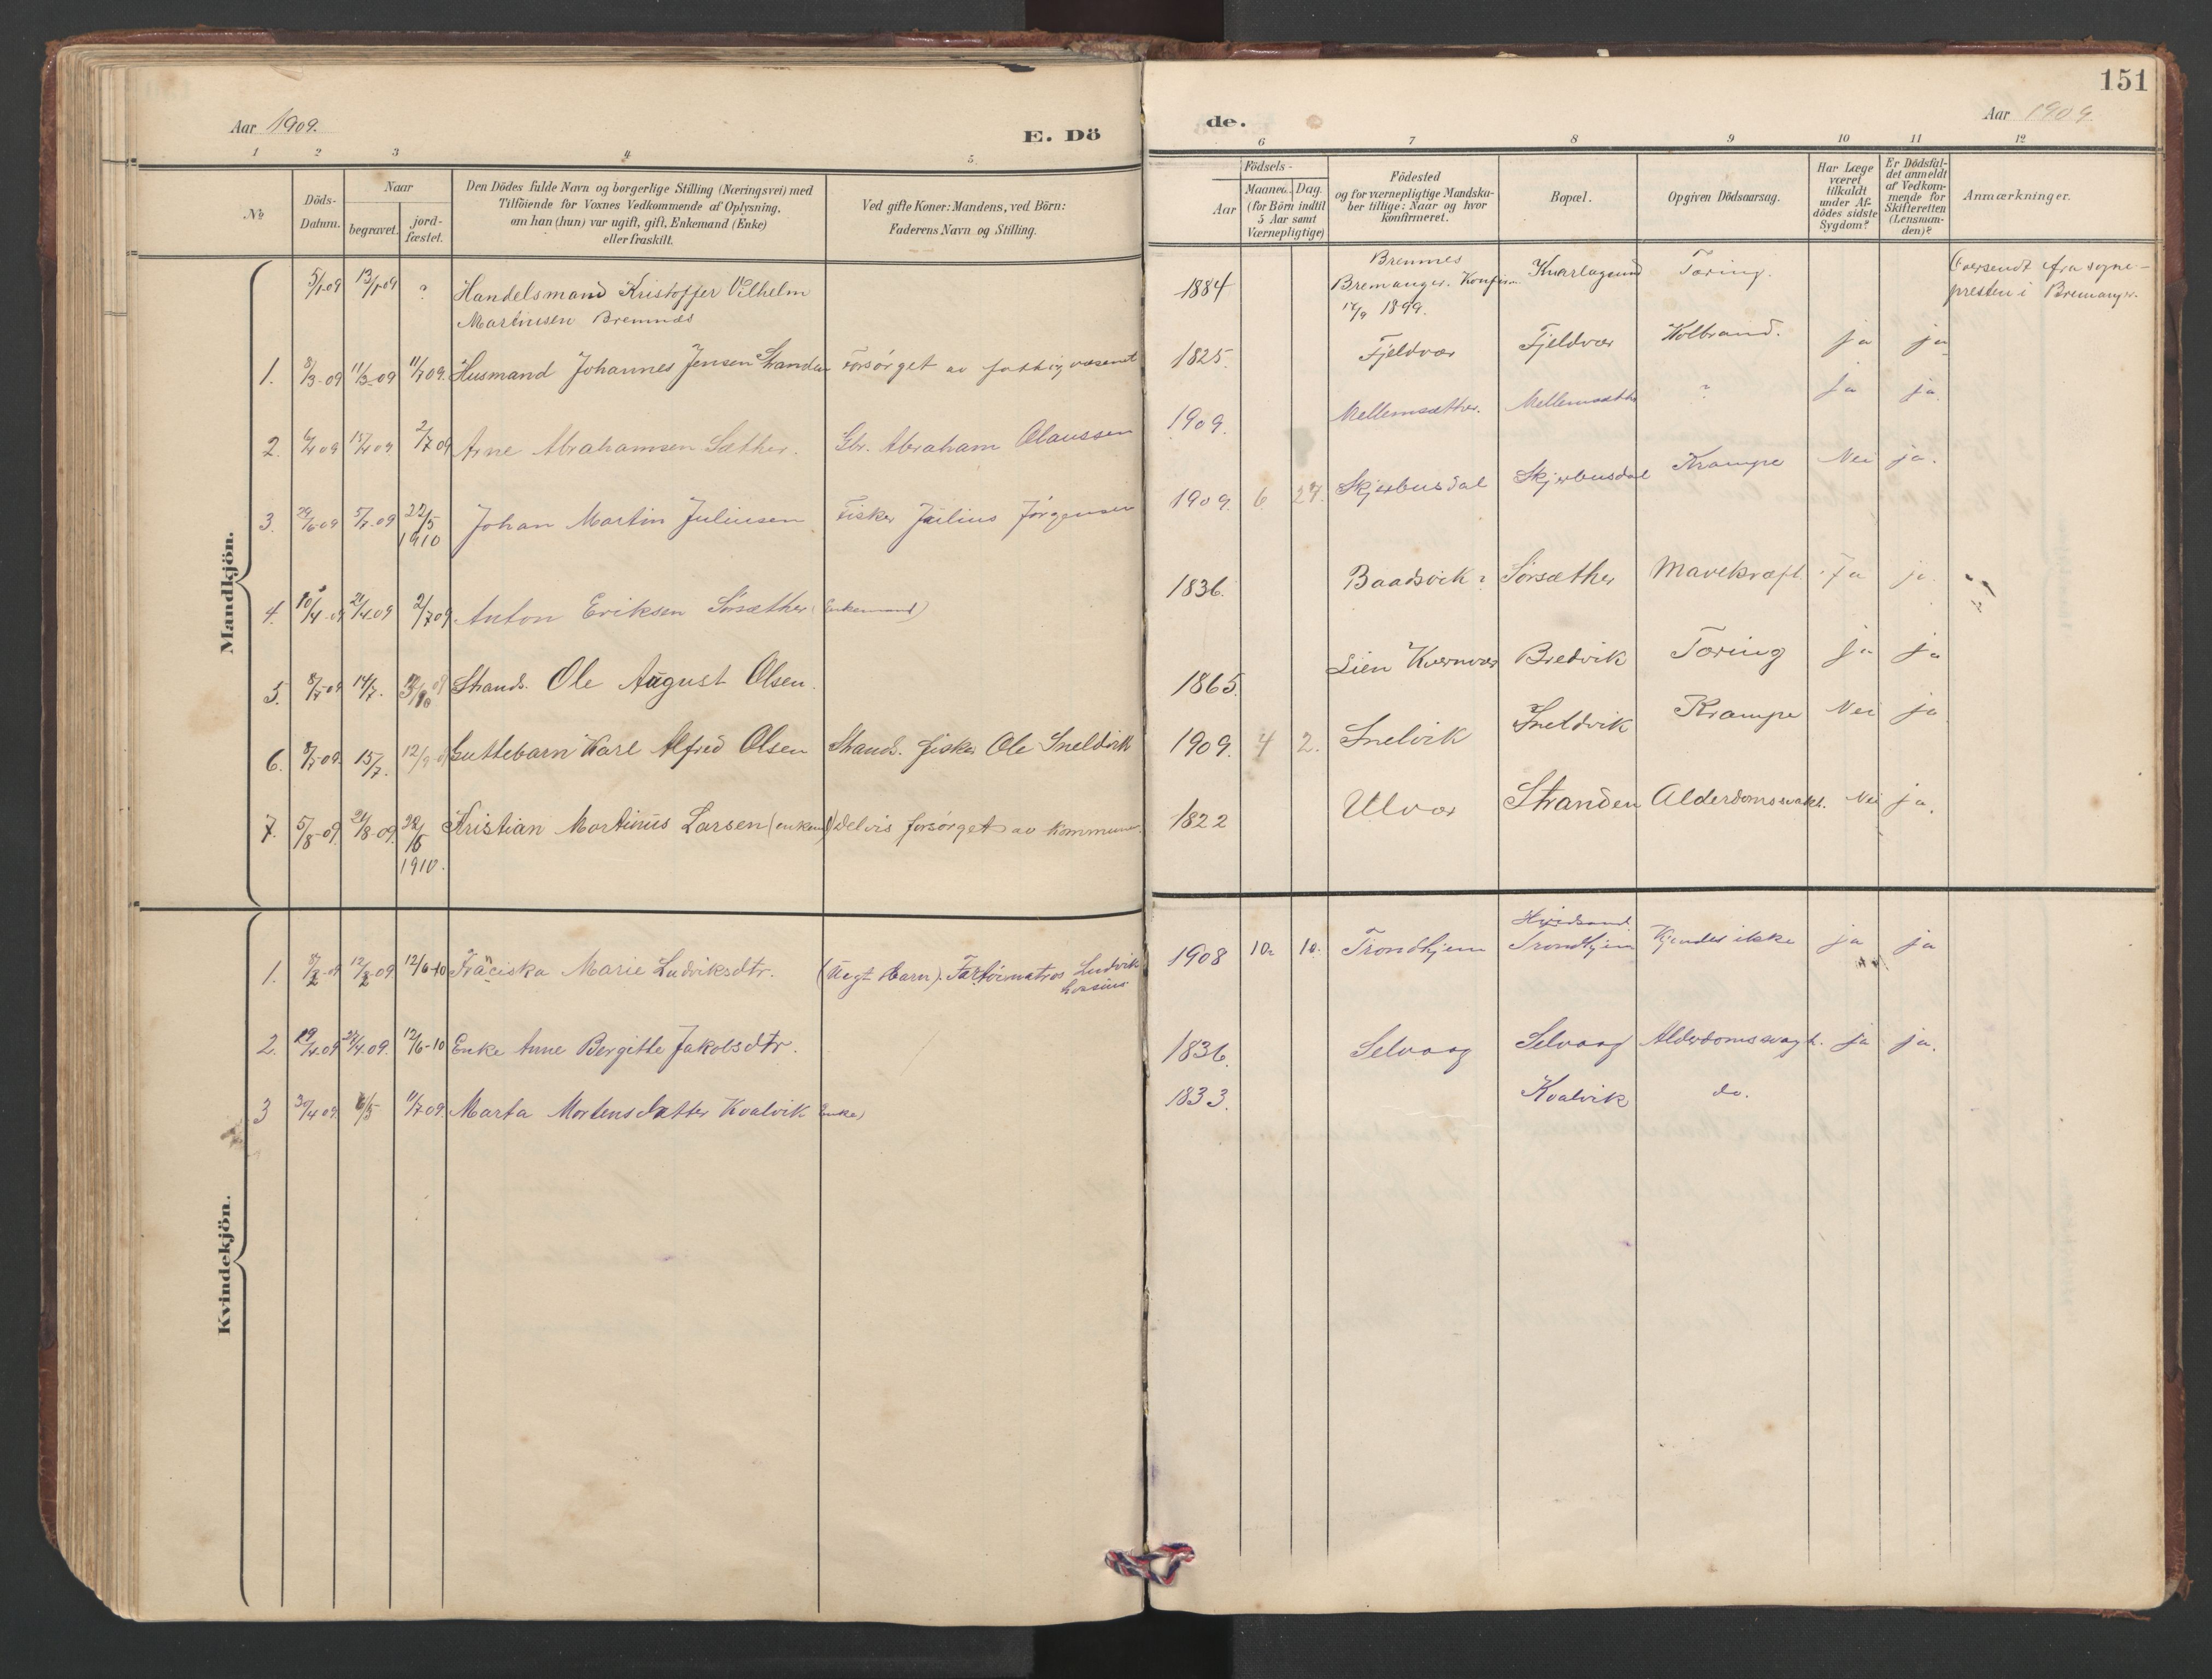 151
Aar 1909.
E. Dö
de.
Aar 1909.
1 2 3 4 5.
6 7 8 9 10 11 12
№
Döds-
Datum.
Naar
begravet.
jord-
fæstet.
Den Dödes fulde Navn og borgerlige Stilling (Næringsvei) med
Tilföiende for Voxnes Vedkommende af Oplysning,
om han (hun) var ugift, gift, Enkemand (Enke)
eller fraskilt.
Ved gifte Koner: Mandens, ved Börn:
Faderens Navn og Stilling.
Födsels-
Aar
Maaned. Dag.
(for Börn indtil
5 Aar samt
Værnepligtige)
Födested
og for værnepligtige Mandska-
ber tillige: Naar og hvor
konfirmeret.
Bopæl.
Opgiven Dödsaarsag.
Har Læge
været
tilkaldt
under Af-
dödes sidste
Sygdom?
Er Dödsfal-
det anmeldt
af Vedkom-
mende for
Skifteretten
(Lensman-
den)?
Anmærkninger.
Mandkjön.
5/1-09 13/1-09 ? Handelsmand Kristoffer Vilhelm
Martinsen Bremnes
1884 Bremnes
Bremanger. Konfirm.
1899.
Tæring.
Oversendt fra sogne-
presten i Bremanger.
1. 8/3-09 11/3-09 11/7 09. Husmand Johannes Jensen Stranden Forsørget av fattigvæsenet 1825. Fjeldvær Fjeldvær Kolbrand. ja ja
2. 6/4 09 15/4 09 2/7 09 Arne Abrahamsen Sæther. Gbr. Abraham Olaussen 1909. Mellemsæther. Mellemsæther ? ja ja.
3. 29/6 09 5/7-09 22/5
1910 Johan Martin Juliussen Fisker Julius Jørgensen 1909. 6 27. Skjærbusdal Skjærbusdal Krampe Nei ja.
4. 10/4-09 21/4-09 2/7 09 Anton Eriksen Sørsæther (Enkemand) 1836. Baadsvik? Sørsæther Mavekræft. Ja ja
5. 8/7-09 14/7. Strands. Ole August Olsen. 1865. Lien Kvernvær Bredvik Tæring ja ja
6. 8/7-09. 15/7. Guttebarn Karl Alfred Olsen Strands. fisker Ole Sneldvik 1909. 4 2. Snelvik Sneldvik Krampe Nei ja
7. 5/8-09. 21/8 09. 22/5
1910. Kristian Martinus Larsen (enkem) Delvis forsørget av kommunen. 1822 Ulvær Stranden Alderdomssvakh. Nei ja.
Kvindekjön.
1. 12/2-09 12/6-10 Franciska Marie Ludviksdtr. (Uegt Barn). Fartøimatros Ludvik
1908 10. 10. Trondhjem Hvidsand
Trondhjem Kjendes ikke ja ja
2. 19/4 09 27/4 09. 12/6-10 Enke Anne Bergitte Jakobsdtr. 1836. Selvaag Selvaag Alderdomssvagh. ja ja.
3 30/4 09 6/5 11/7 09 Marta Mortensdatter Kvalvik (Enke) 1833. Kvalvik do.